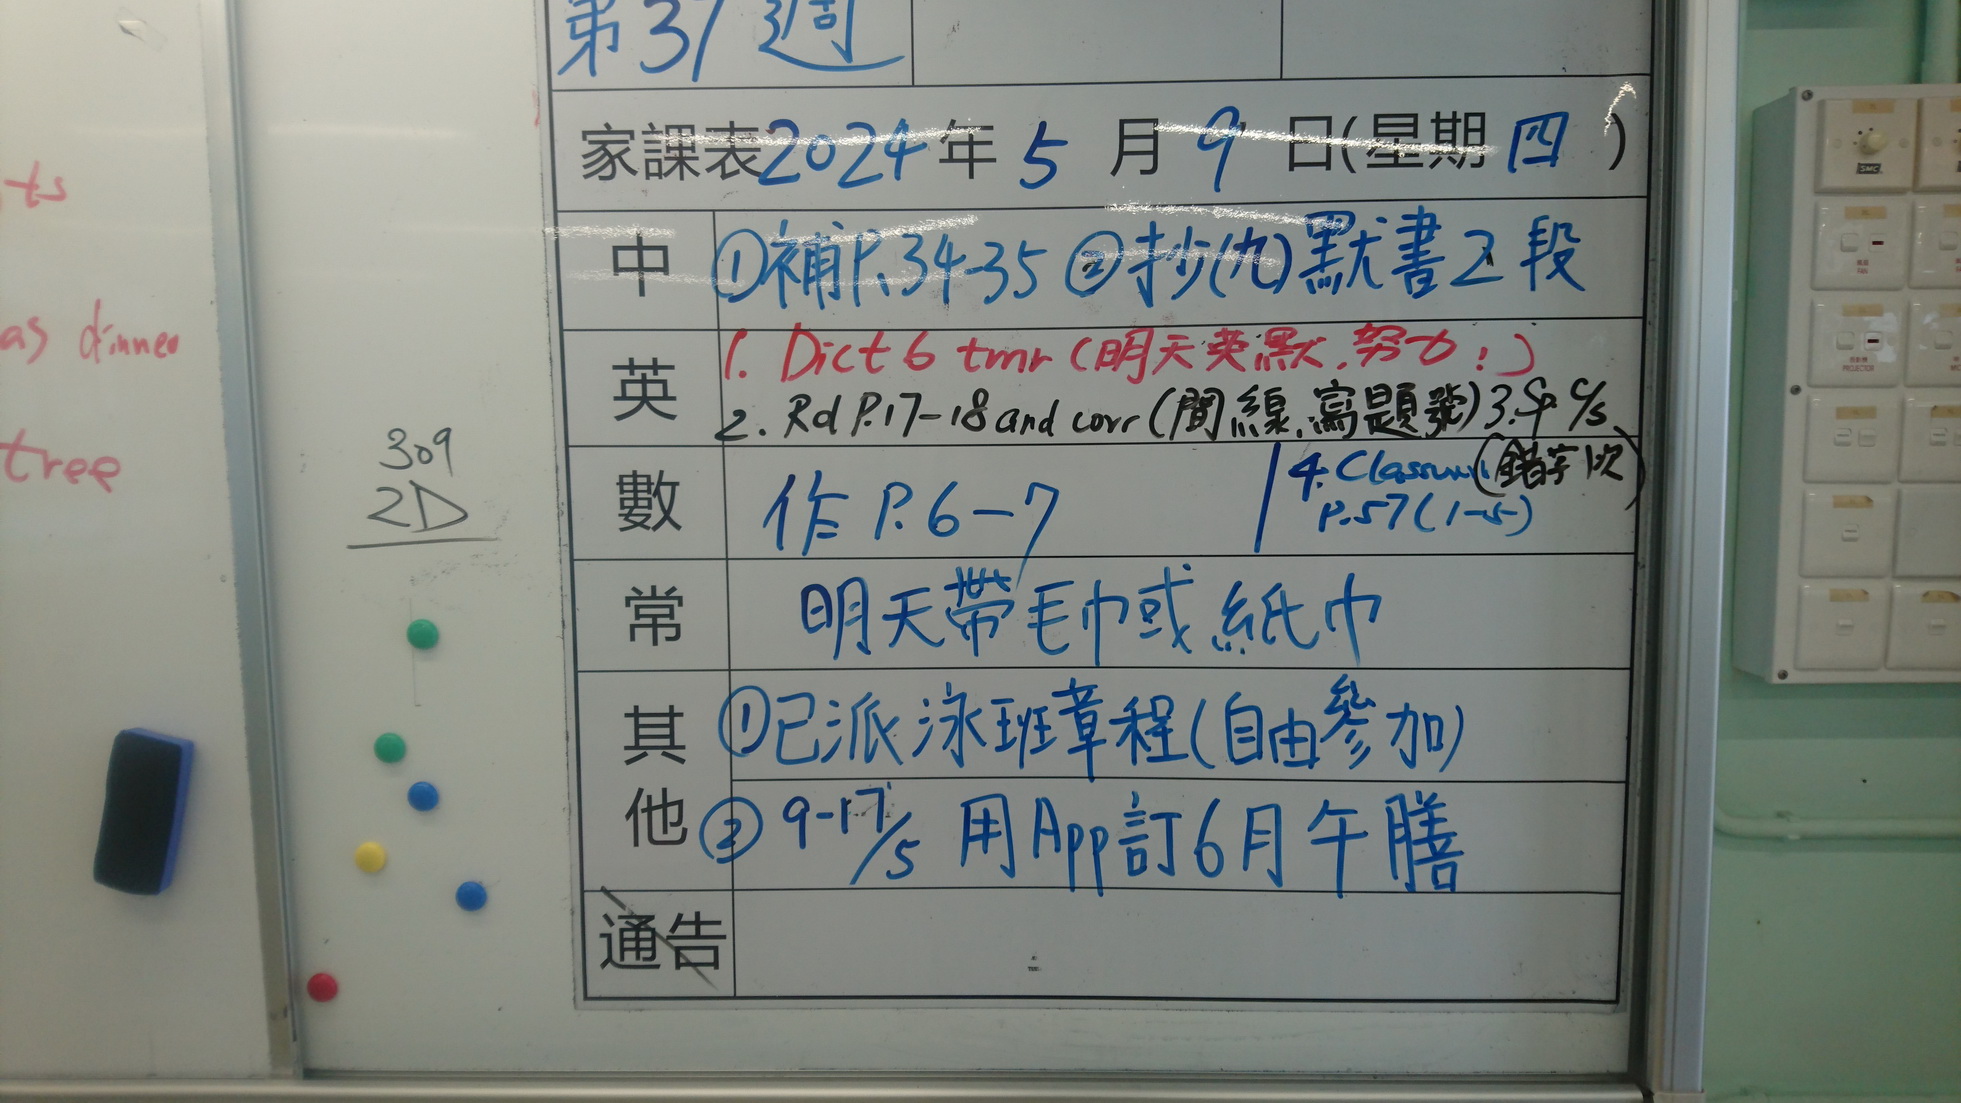 第37週
家課表2024年5月9日(星期四)
中 ①補P.34-35 ②抄(九)默書2段
英 1. Dict 6 tmr (明天英默,努力!)
2. Rd P.17-18 and corr (間線,寫題號) 3. Sp c/s
(錯字1次)
數 作P.6-7
4. Classwork
P.57(1-5)
常 明天帶毛巾或紙巾
其他 ①已派泳班章程(自由參加)
② 9-17/5 用App訂6月午膳
通告
309
2D
ts
as dinner
tree
SMC